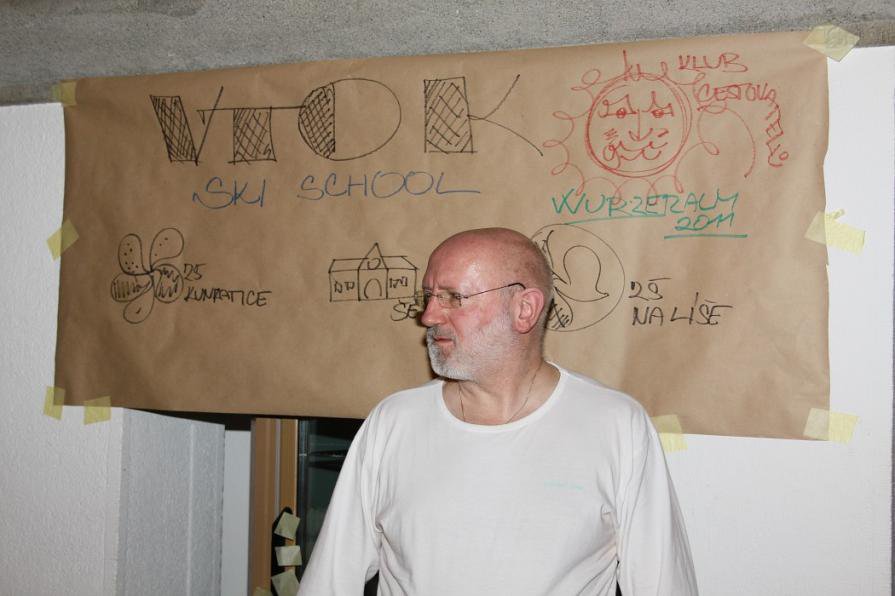 VTOK
SKI SCHOOL
KLUB
CESTOVATELŮ
WURZERALM
2011
ZŠ
KUNRATICE
ŠE
ZŠ
NA LÍŠE